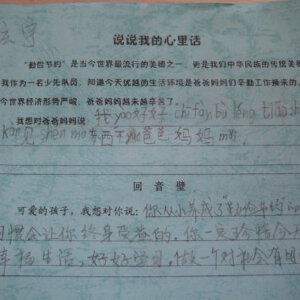 宇
说说我的心里话
"勤俭节约"是当今世界最流行的美德之一,更是我们中华民族的传统美德
我作为一名少先队员,知道今天优越的生活环境是爸爸妈妈们辛勤工作换来的,
今世界经济形势严峻,爸爸妈妈越来越辛苦了。
我想对爸爸妈妈说 我yao好好chi fan bù
见 shen me 东西不 爸爸妈妈 mǎi
回音壁
可爱的孩子,我想对你说:你从小养成了
习惯会让你终身受益的,你一定 今天
幸福生活,好好学习,做一个对社会有用